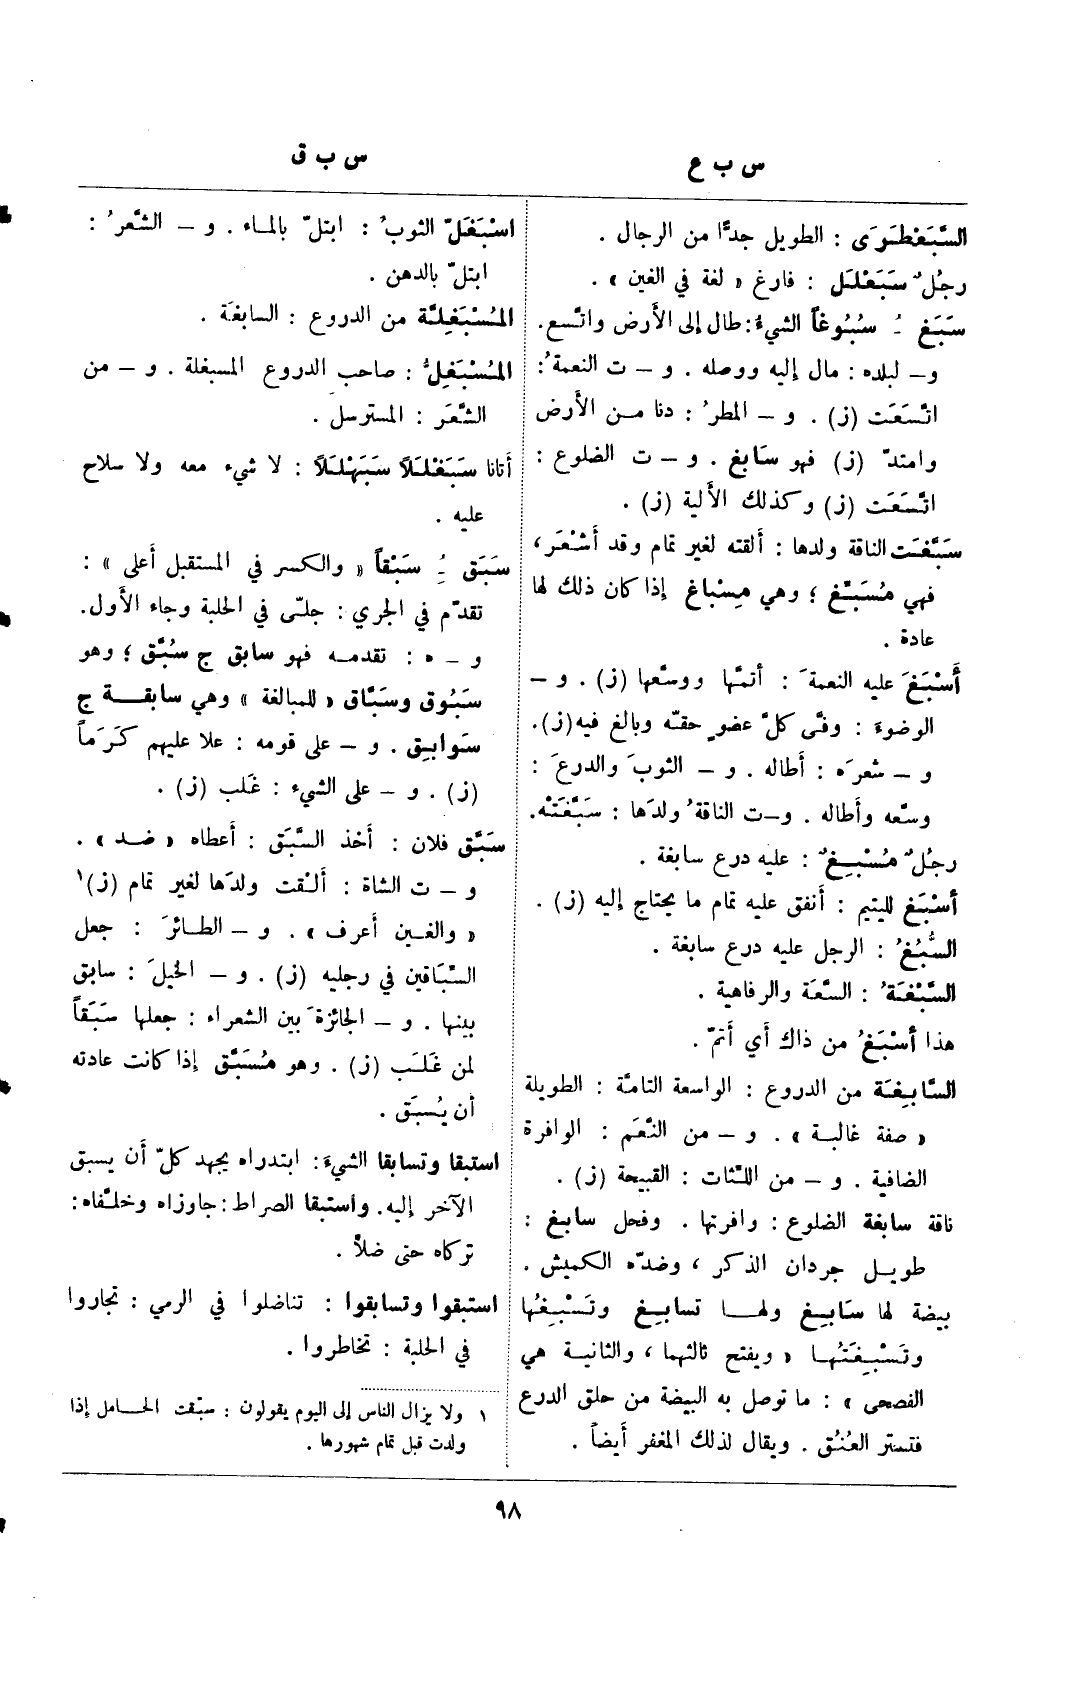 س ب ع
س ب ق
السَّبَعْطَرَى : الطويل جدًّا من الرجال .
رجُلٌ سَبَعْلَل : فارغ « لغة في الغين » .
سَبَغ ـُ سُبُوغاً الشيءُ : طال إلى الأَرض واتَّسع .
و – لبلده : مال إليه ووصله . و – ت النعمةُ :
اتَّسَعَت (ز) . و – المطرُ : دنا من الأَرض
وامتدّ (ز) فهو سَابغ . و – ت الضلوع :
اتَّسَعَت (ز) وكذلك الأَلية (ز) .
سَبَّغَت الناقة ولدها : ألقته لغير تمام وقد أَشْعَر ،
فهي مُسَبِّغ ؛ وهي مِسْباغ إذا كان ذلك لها
عادة .
أَسْبَغَ عليه النعمةَ : أتمَّها ووسَّعها (ز) . و –
الوضوءَ : وفَّى كلَّ عضوٍ حقَّه وبالغ فيه (ز) .
و – شعرَه : أطاله . و – الثوبَ والدرعَ :
وسَّعه وأطاله . و – ت الناقةُ ولدَها : سَبَّغَتْه .
رجُلٌ مُسْبِغٌ : عليه درع سابغة .
أسْبَغ لليتيم : أنفق عليه تمام ما يحتاج إليه (ز) .
السُّبُغُ : الرجل عليه درع سابغة .
السَّبْغَةُ : السَّعَة والرفاهية .
هذا أسْبَغُ من ذاك أي أَتمّ .
السَّابِغَة من الدروع : الواسعة التامَّة : الطويلة
« صفة غالبة » . و – من النَّعَم : الوافرة
الضافية . و – من اللثات : القبيحة (ز) .
ناقة سابغة الضلوع : وافرتها . وفحل سابغ :
طويل جردان الذكر ، وضدّه الكميش .
بيضة لها سَابِغ ولها تسابِغ وتَسْبِغُها
وتَسْبِغَتُها « ويفتح ثالثهما ، والثانية هي
الفصحى » : ما توصل به البيضة من حلق الدرع
فتستر العُنُق . ويقال لذلك المغفر أيضاً .
اسْبَغَلّ الثوبُ : ابتلّ بالماء . و – الشَّعرُ :
ابتلّ بالدهن .
المُسْبَغِلَّة من الدروع : السابغَة .
المُسْبَغِلُّ : صاحب الدروع المسبغلة . و – من
الشَّعَر : المسترسل .
أتانا سَبَغْلَلاً سَبَهْلَلاً : لا شيء معه ولا سلاح
عليه .
سَبَق ـُِ سَبْقاً « والكسر في المستقبل أعلى » :
تقدّم في الجري : جلَّى في الحلبة وجاء الأَول .
و – ه : تقدمه فهو سابق ج سُبَّق ؛ وهو
سَبُوق وسَبَّاق « للمبالغة » وهي سابقة ج
سَوابِق . و – على قومه : علا عليهم كَرَماً
(ز) . و – على الشيء : غَلب (ز) .
سَبَّق فلان : أخذ السَّبَق : أعطاه « ضد » .
و – ت الشاة : ألقت ولدَها لغير تمام (ز)١
« والغين أعرف » . و – الطائرَ : جعل
السِّبَاقين في رجليه (ز) . و – الخيلَ : سابق
بينها . و – الجائزةَ بين الشعراء : جعلها سَبَقاً
لمن غَلَب (ز) . وهو مُسَبَّق إذا كانت عادته
أن يُسبَق .
استبقا وتسابقا الشيءَ : ابتدراه يجهد كلّ أن يسبق
الآخر إليه . واستبقا الصراط : جاوزاه وخلَّفاه :
تركاه حتى ضلاَّ .
استبقوا وتسابقوا : تناضلوا في الرمي : تجاروا
في الحلبة : تخاطروا .
١ ولا يزال الناس إلى اليوم يقولون : سبّقت الحامل إذا
ولدت قبل تمام شهورها .
٩٨